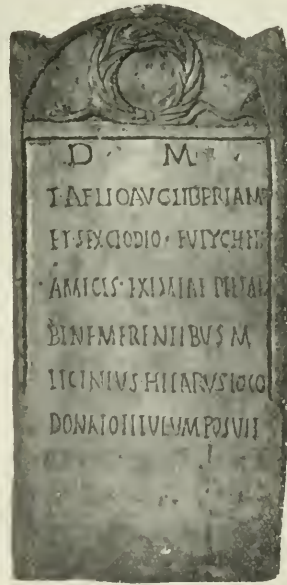 D M
T·AELIO AVG L TIBERIAN
ET SEX CLODIO · EVTYCHE
AMICIS · EXIMIAE PIETAE
BENEMERENTIBVS M
LICINIVS HILARVS LOCO
DONATO TITVLVM POSVIT